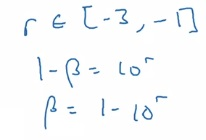 r ∈ [-3, -1]
1-β = 10^r
β = 1 - 10^r